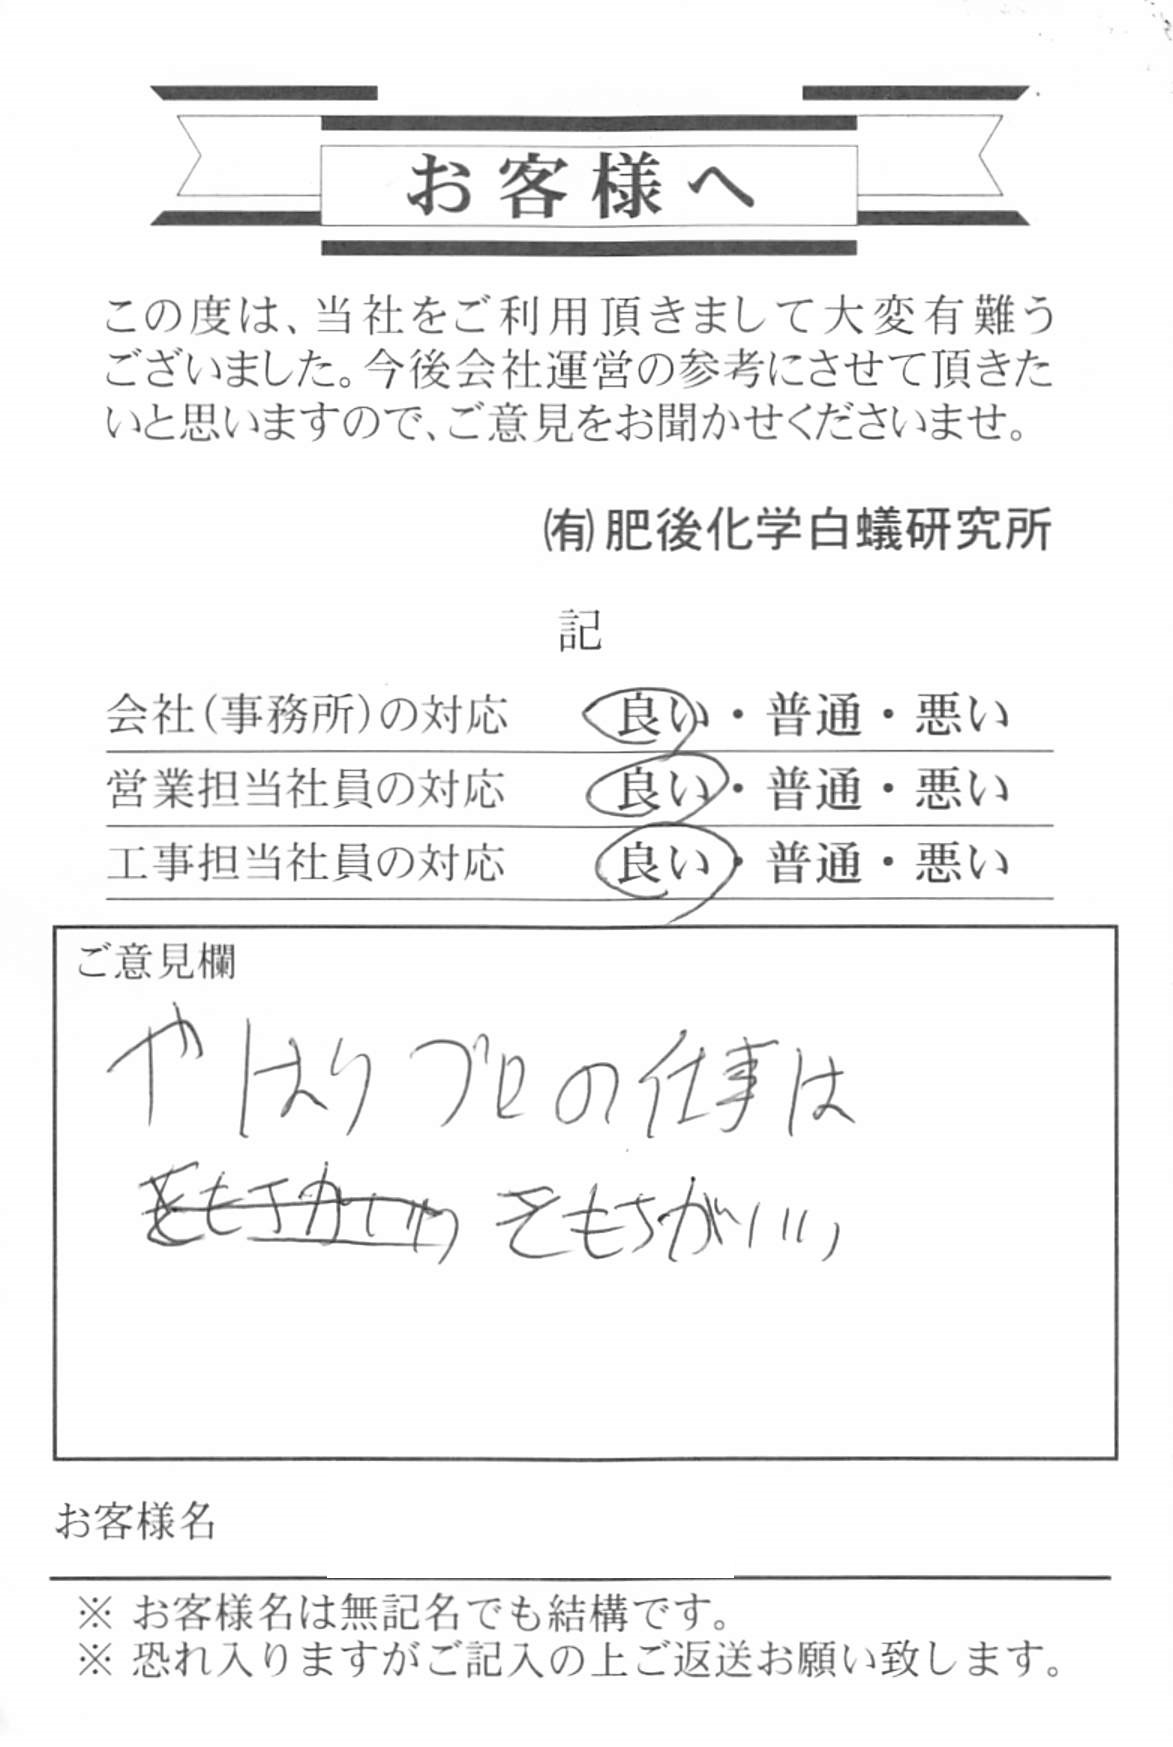 お客様へ
この度は、当社をご利用頂きまして大変有難う
ございました。今後会社運営の参考にさせて頂きた
いと思いますので、ご意見をお聞かせくださいませ。
㈲肥後化学白蟻研究所
記
会社(事務所)の対応 良い・普通・悪い
営業担当社員の対応 良い・普通・悪い
工事担当社員の対応 良い・普通・悪い
ご意見欄
やはりプロの仕事は
きもちがいい
お客様名
※ お客様名は無記名でも結構です。
※ 恐れ入りますがご記入の上ご返送お願い致します。